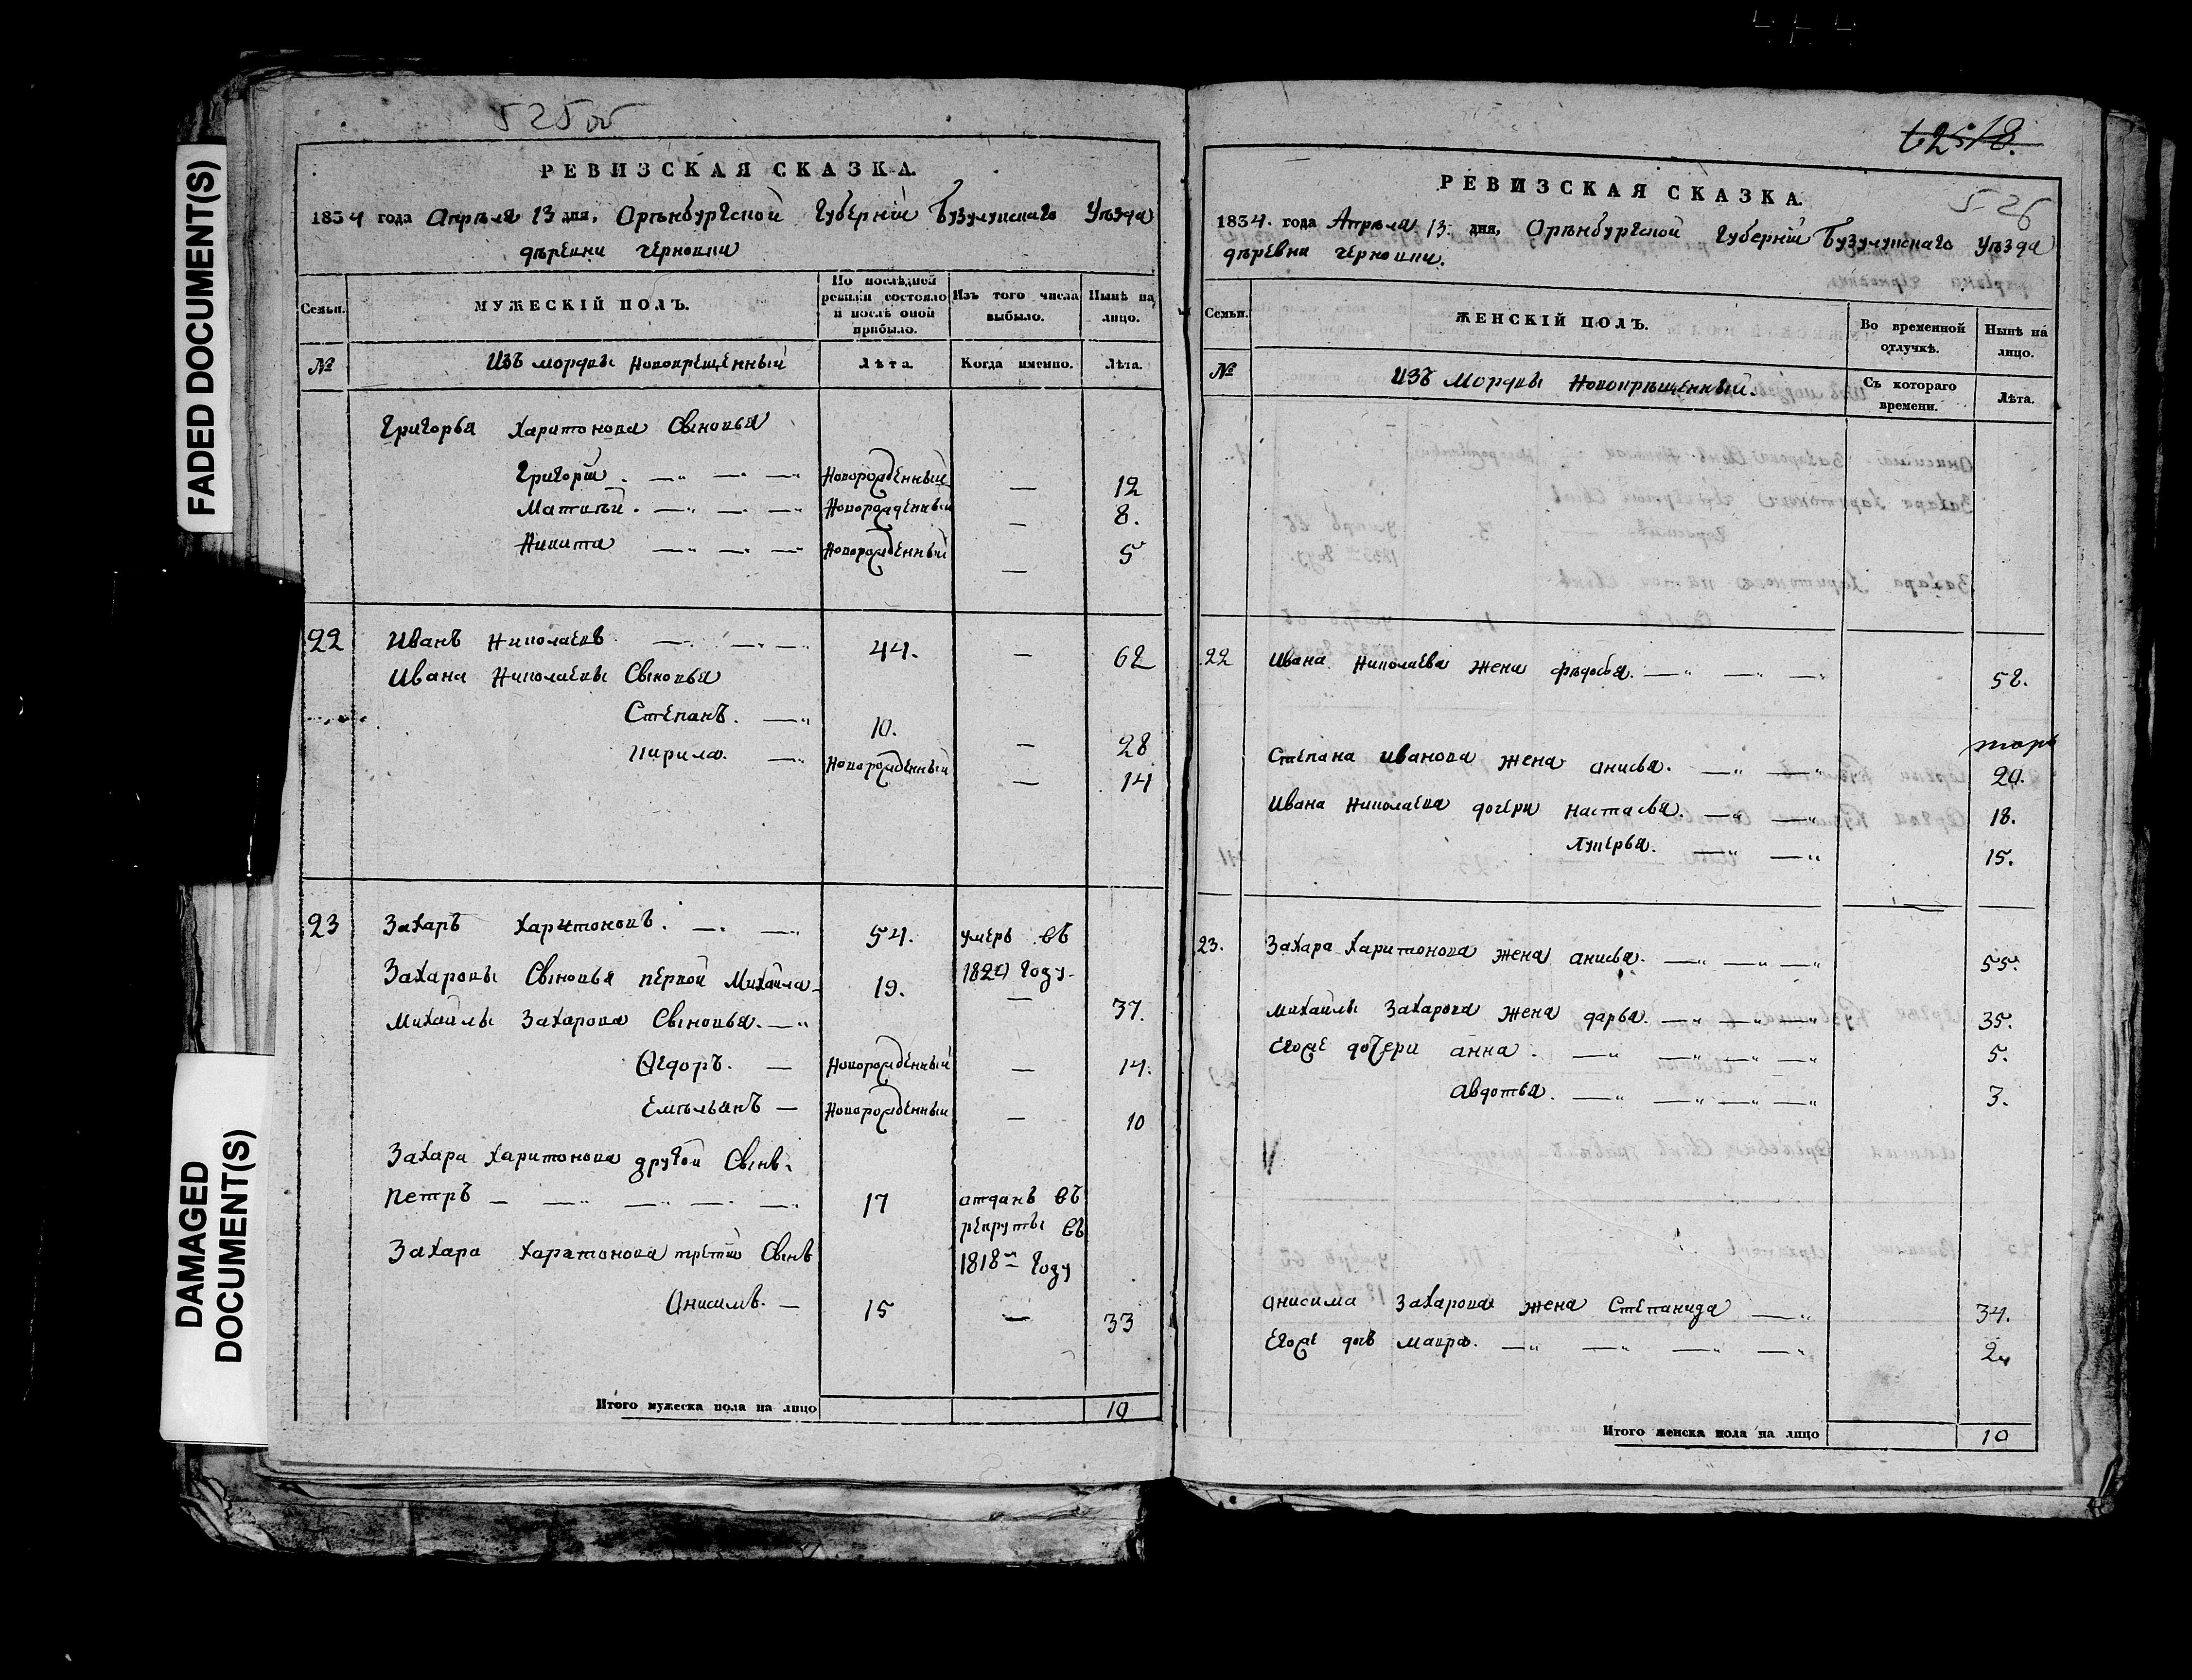 FADED DOCUMENT(S)
DAMAGED
DOCUMENT(S)
525об
РЕВИЗСКАЯ СКАЗКА.
1834 года Апреля 13 дня, Оренбургской Губернiи Бузулукскаго Уезда
деревни Черновки
Семьи.
МУЖЕСКIЙ ПОЛЪ.
По последней ревизiи состояло и после оной прибыло.
Изъ того числа выбыло.
Ныне на лицо.
№
Изъ мордвы новокрещенный
Лѣта.
Когда именно.
Лѣта.
Григорья Харитонова Сыновья
Григорiй. Новорожденный — 12
Матвей. Новорожденный — 8.
Никита Новорожденный — 5
22 Иванъ Николаевъ 44. — 62
Ивана Николаевы Сыновья
Степанъ. 10. — 28
Кирила. Новорожденный — 14
23 Захаръ Харитоновъ. 54. умеръ въ
1820 году.
Захаровы Сыновья первой Михайла 19. — 37.
Михайлы Захарова Сыновья.
Ѳедоръ. Новорожденный — 14.
Емельянъ — Новорожденный — 10
Захара Харитонова другой Сынъ.
Петръ 17 отданъ въ
рекруты въ
1818м году
Захара Харатонова третiй Сынъ
Анисимъ. — 15 — 33
Итого мужеска пола на лицо 10
526
РЕВИЗСКАЯ СКАЗКА.
1834. года Апреля 13. дня, Оренбургской Губернiи Бузулукскаго Уезда
деревни Черновки.
Семьи.
ЖЕНСКIЙ ПОЛЪ.
Во временной отлучкѣ.
Нынѣ на лицо.
№
Изъ Мордвы Новокрещенный.
Съ котораго времени.
Лѣта.
22 Ивана Николаева жена Федосья. 58.
Степана Иванова жена анисья. 20.
Ивана Николаева дочери настасья. 18.
Лукерья. 15.
23. Захара Харитонова жена анисья. 55.
Михайлы Захарова жена дарья. 35.
Егоже дочери анна. 5.
авдотья. 3.
анисима Захарова жена Степанида 34.
Егоже дочь мавра. 2
Итого женска пола на лицо 10